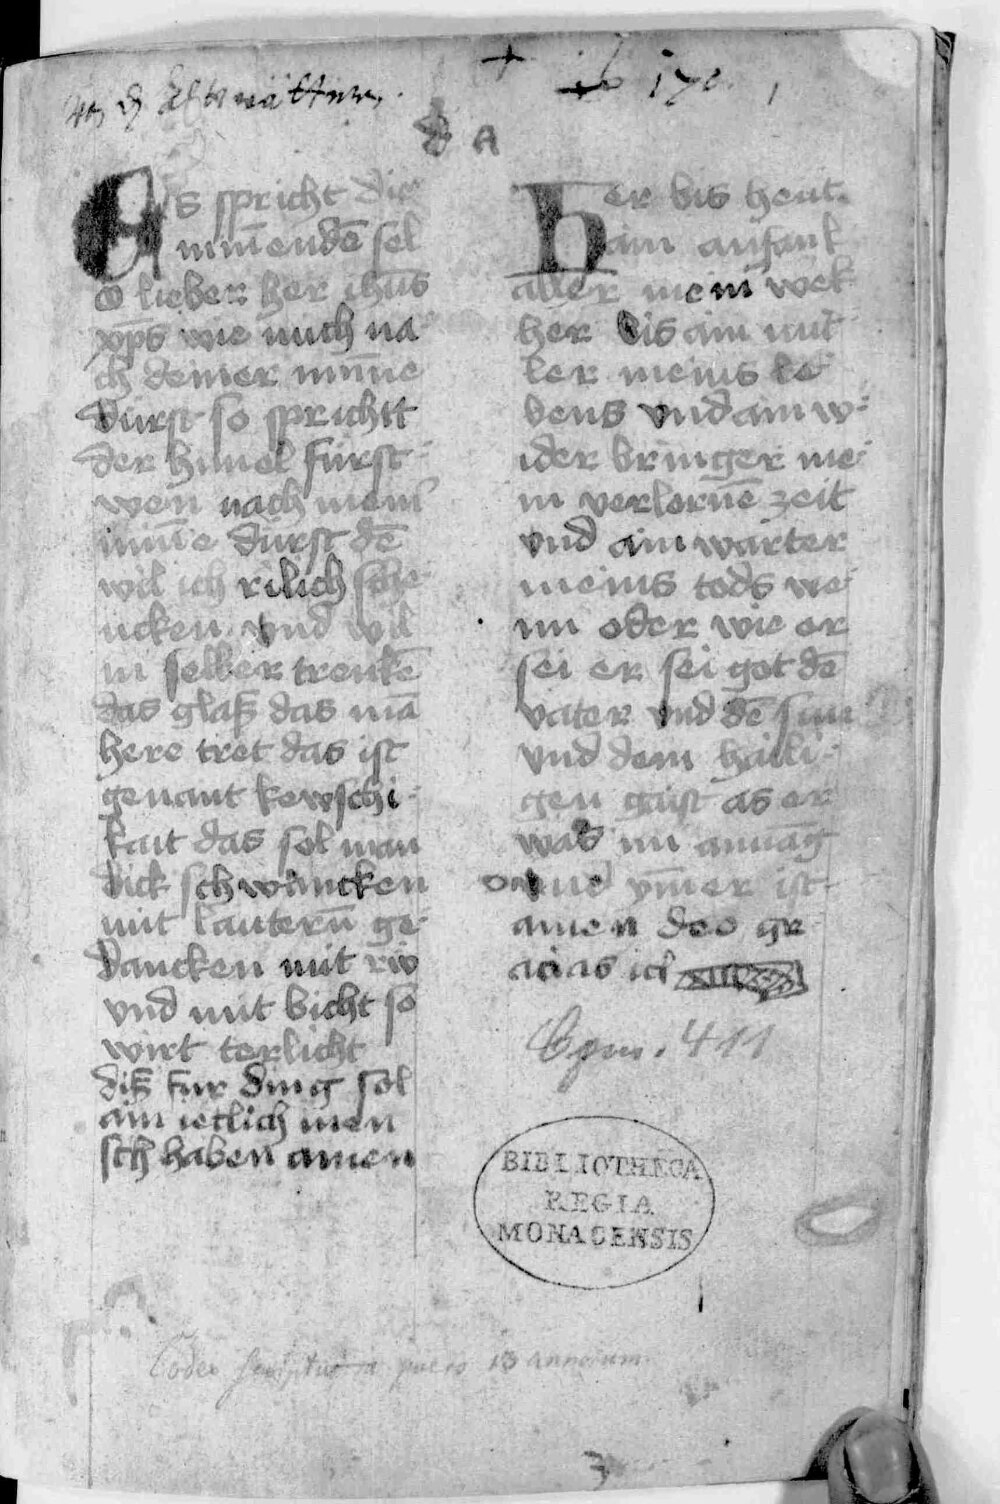 170
d A
Es spricht die
minēnde sel
O lieber her ihūs
xp̄s wie mich na
ch deiner mīne
dürst so sprichtt
der himel fürst
wen nach meinr
minne dürst dē
wil ich rilich sche
ncken vnd wil
in selber trenkē
das glaß das mā
here tret das ist
genant kewschi
kait das sol man
dick schwancken
mit lauterū ge
dancken mit riv
vnd mit bicht so
wirt torlicht
diß fur ding sol
ain ietlich men
sch haben amen
Her bis heut
ain anfank
aller meinr wek
her bis ain mit
ler meins le
bens vnd ain w
ider bringer me
in verlornē zeit
vnd ain warter
meins tods we
nn oder wie er
sei er sei got dē
vater vnd dē sune
vnd dem haili
gen gaist as er
was im anuāg
vnd ym̄er ist
amen deo gr
acias ich
Cgm. 411
BIBLIOTHECA
REGIA
MONACENSIS
Codex scriptus a puero 13 annorum.